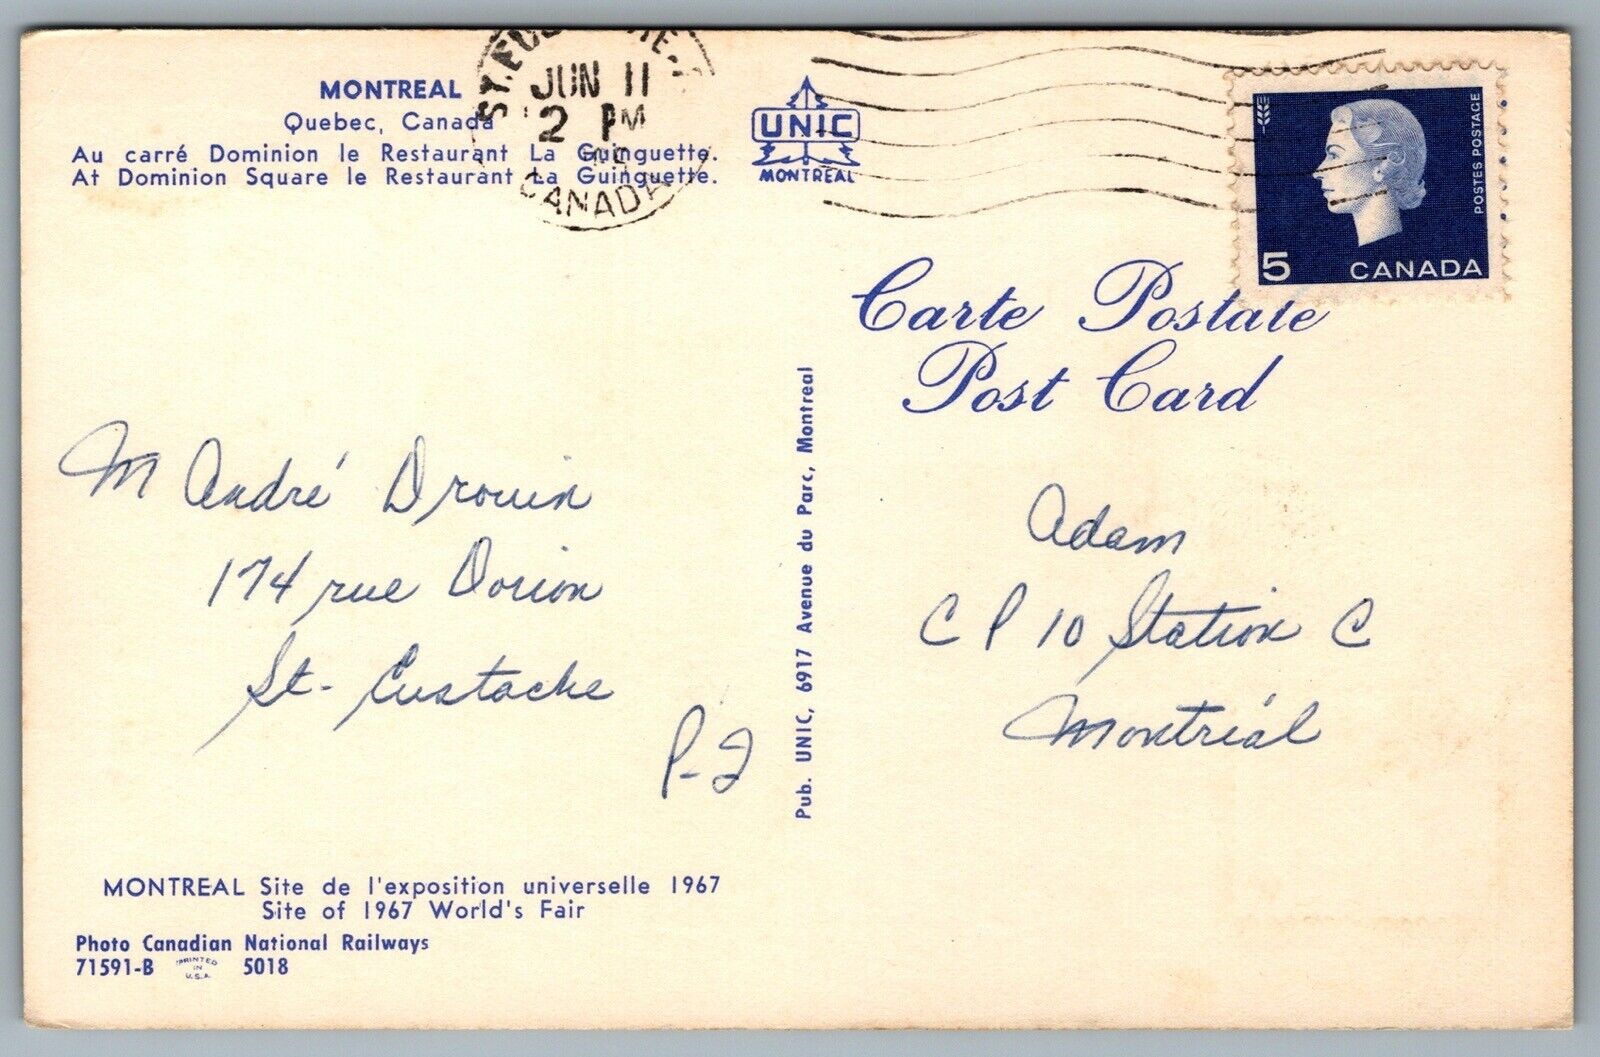 MONTREAL
Quebec, Canada
Au carré Dominion le Restaurant La Guinguette.
At Dominion Square le Restaurant La Guinguette.
JUN 11
2 PM
CANADA
UNIC
MONTRÉAL
POSTES POSTAGE
5 CANADA
Carte Postale
Post Card
M André Drouin
174 rue Dorion
St-Eustache
P-2
Pub. UNIC, 6917 Avenue du Parc, Montreal
Adam
C P 10 Station C
Montréal
MONTREAL Site de l'exposition universelle 1967
Site of 1967 World's Fair
Photo Canadian National Railways
71591-B PRINTED IN U.S.A. 5018